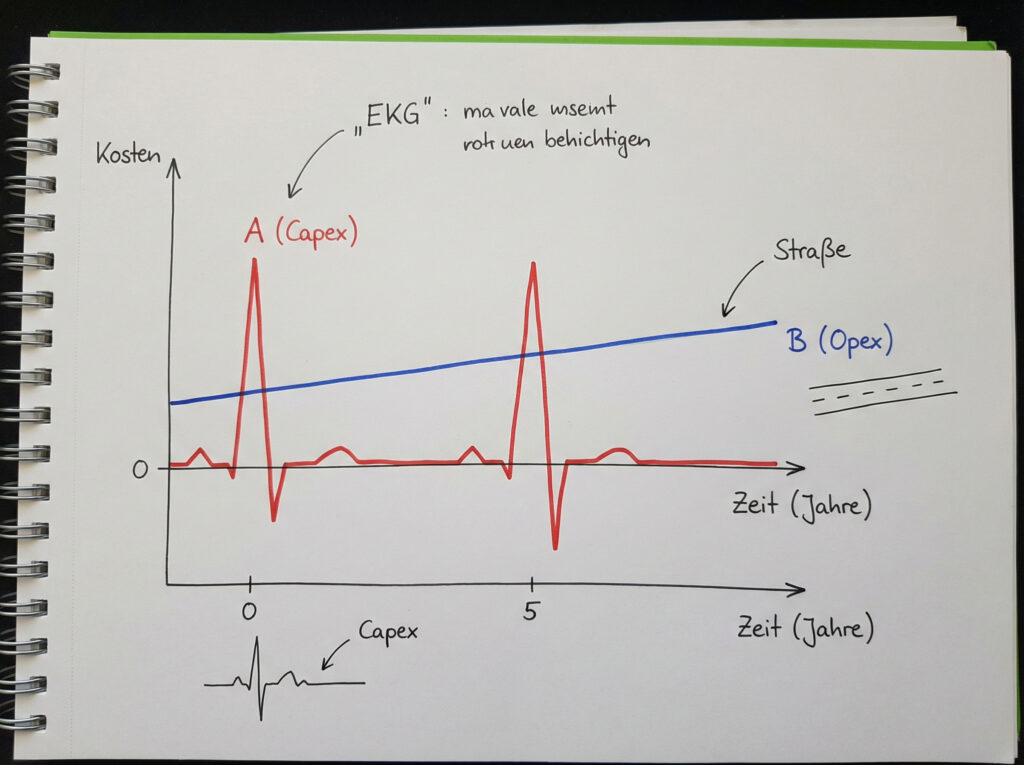 „EKG“ : ma vale unsemt
roh uen behichtigen
Kosten
A (Capex)
Straße
B (Opex)
0
Zeit (Jahre)
0
5
Zeit (Jahre)
Capex